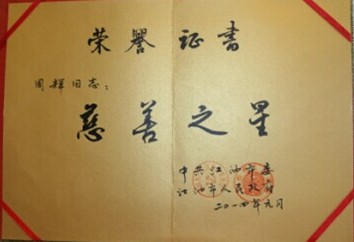 荣誉证书
周辉同志：
慈善之星
中共江油市委
江油市人民政府
二〇一四年元月